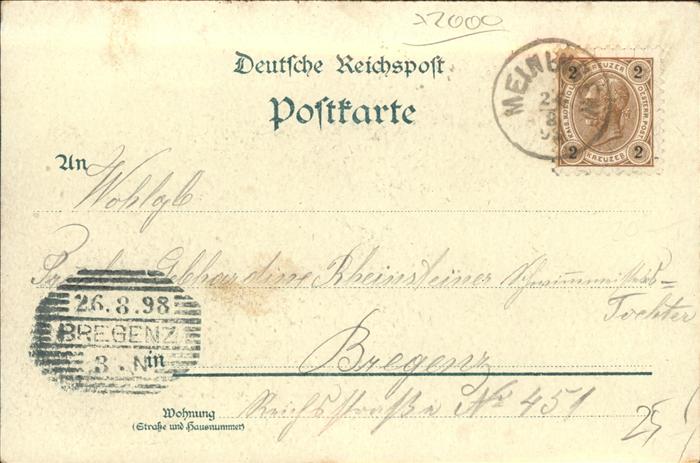 x2000
Deutsche Reichspost
Postkarte
MEINI
2
8
9
2 KREUZER 2
KAIS. KÖNIGL. ÖSTERR. POST
2 KREUZER 2
An
Wohlgb
Gebhardine Rheinsteiner
Tochter
26.8.98
BREGENZ
3. N
in Bregenz
Wohnung Reichsstraße No 451
(Straße und Hausnummer)
25,-